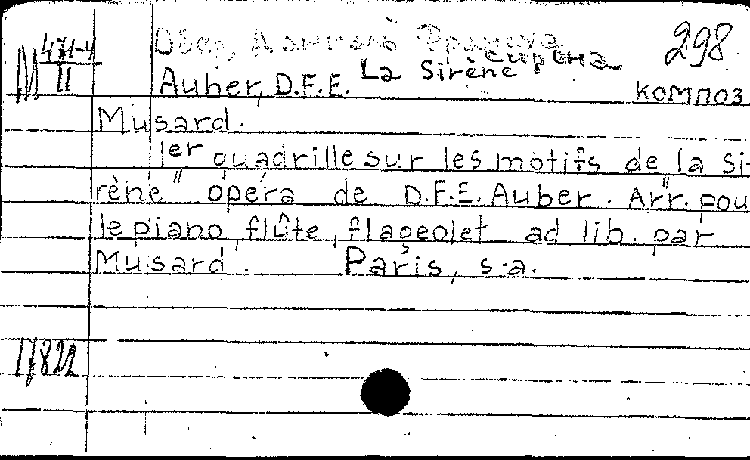 М 471-4 Обер, Даниель Франсуа 298
II Сирена
Auber, D.F.E. La Sirène композ
Musard.
1er quadrille sur les motifs de "la si-
rène" opéra de D.F.E. Auber. Arr. pou
le piano, flûte, flageolet ad lib. par
Musard. Paris, s.a.
17822